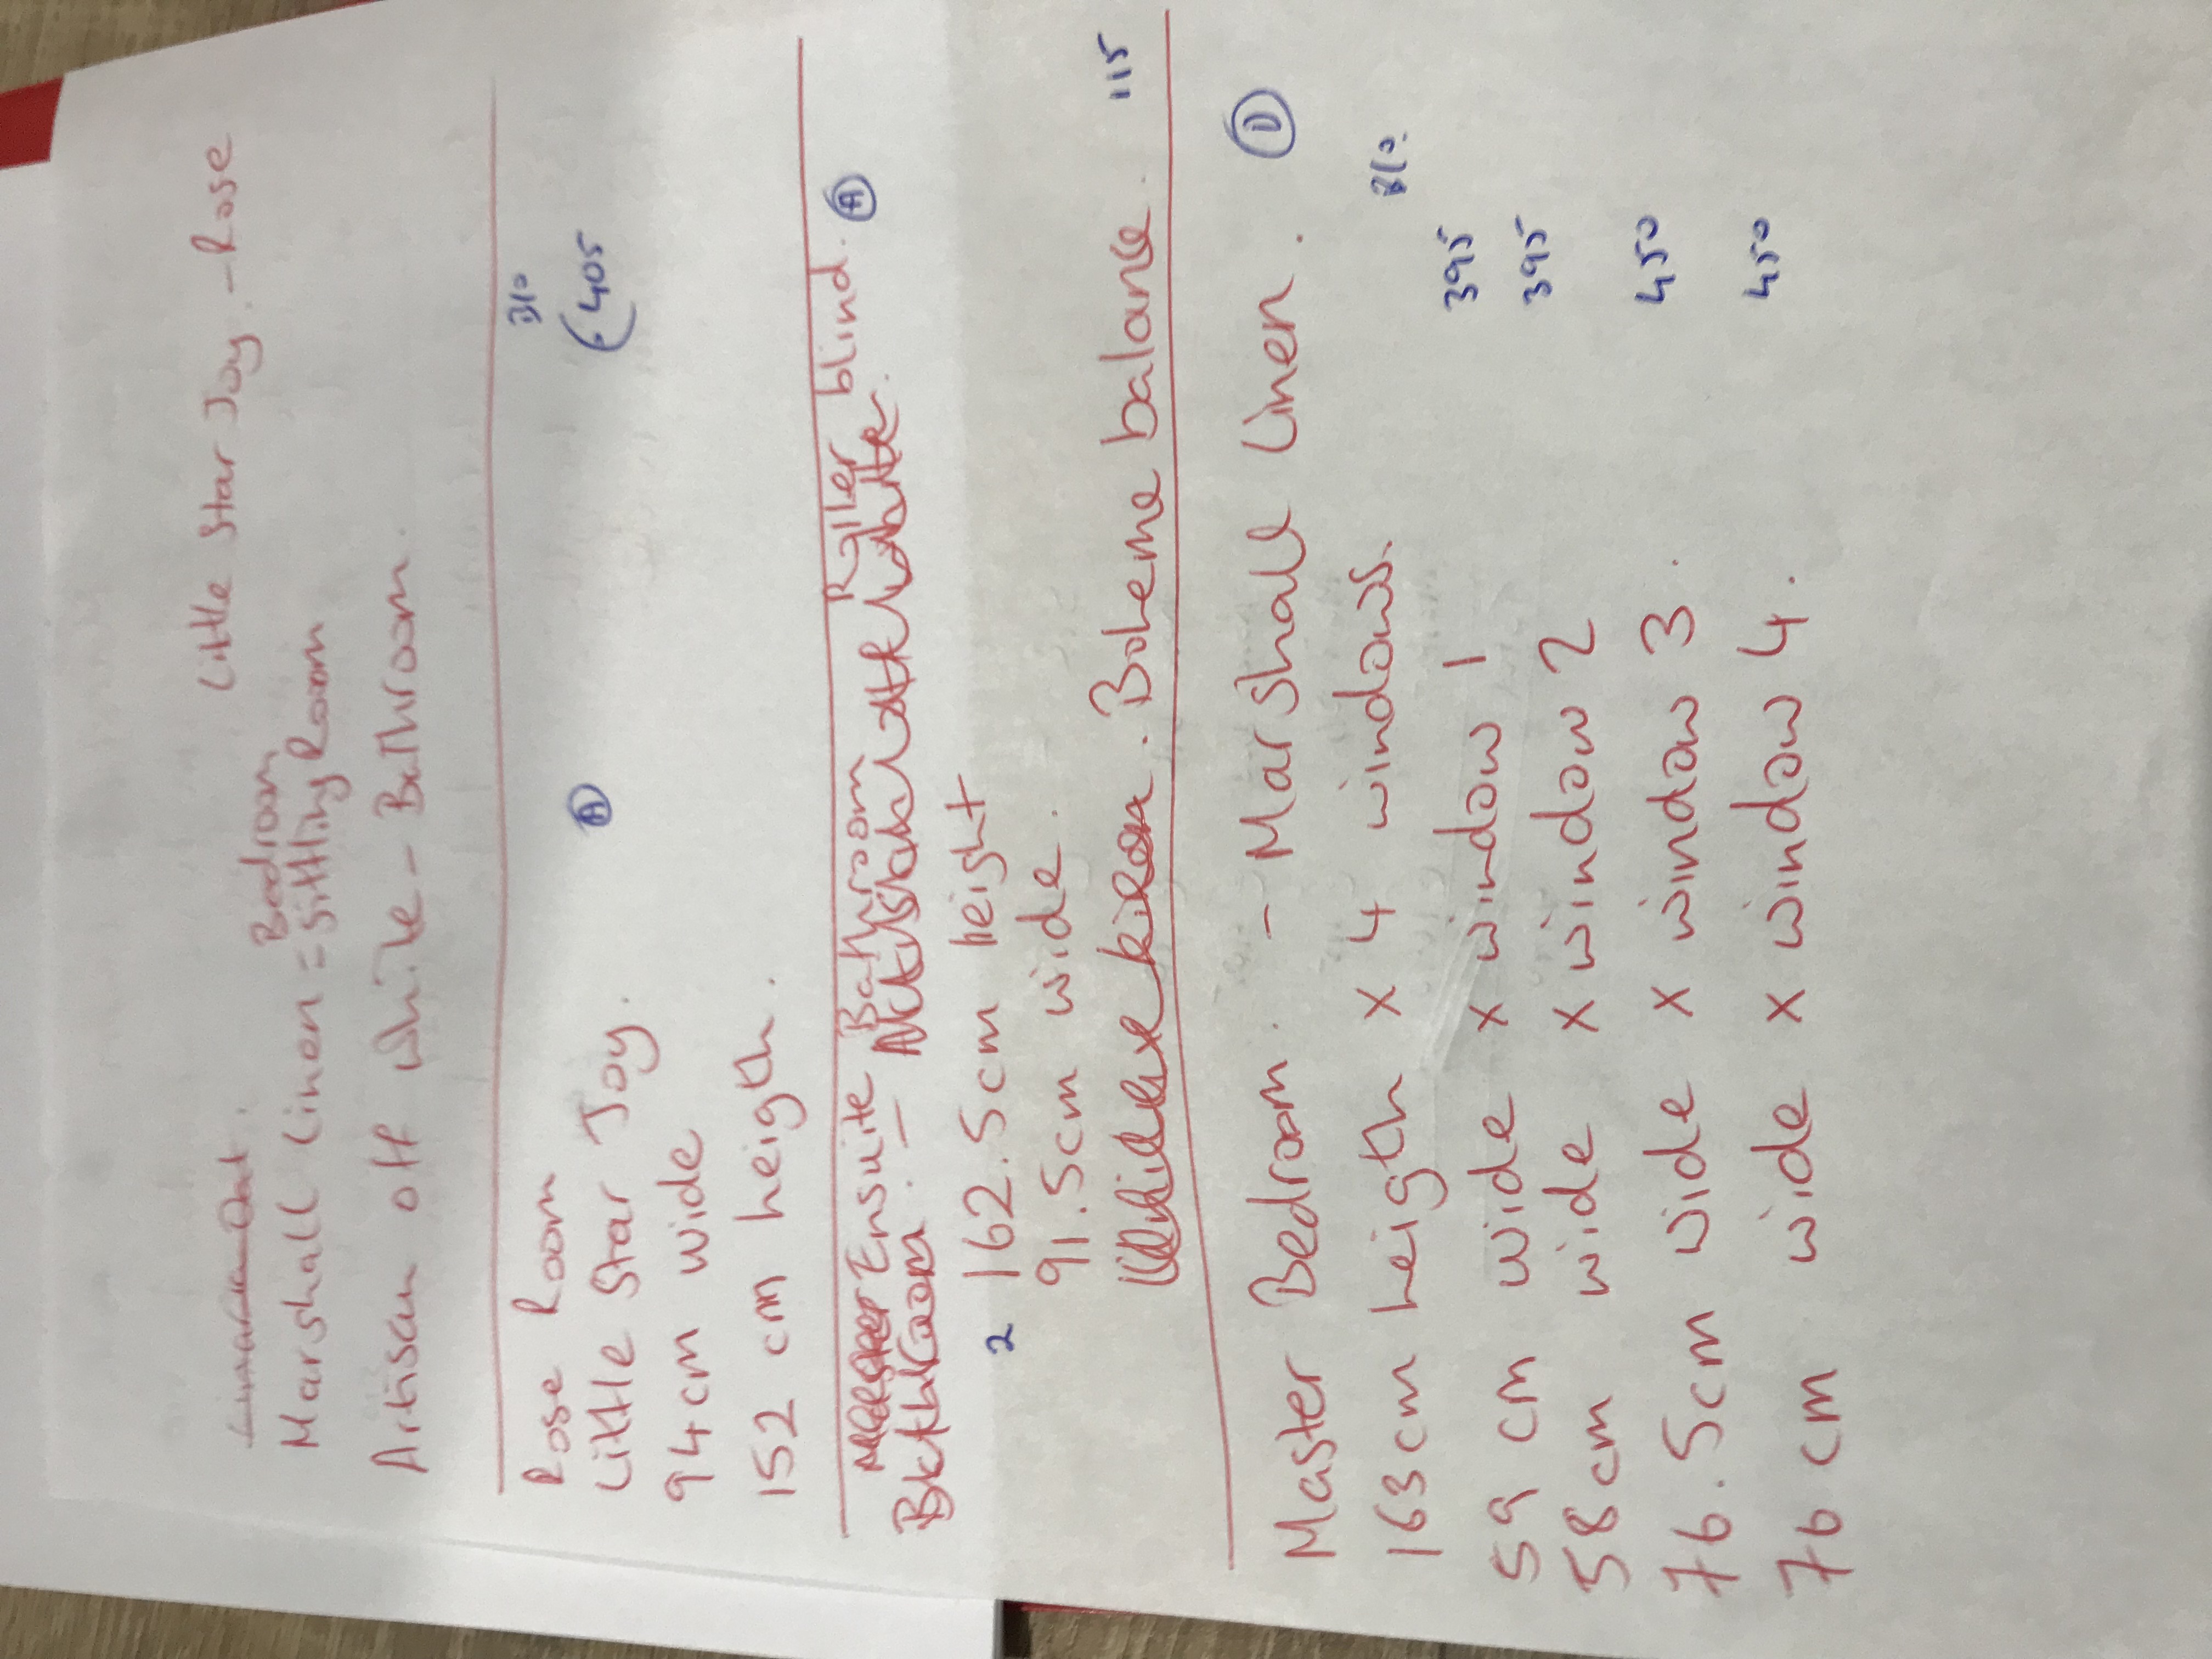 Little Star Joy. - Rose
Bedroom
Marshall Linen = Sitting Room
Artisan off white - Bathroom.
Rose Room B/o
Little Star Joy. (405
94cm wide
152 cm heigth.
Ensuite Bathroom Roller blind. A
2 162.5cm height
91.5cm wide.
Boheme balance. 115
Master Bedroom. - Marshall Linen. D
163cm heigth x 4 windows. B/o.
59 cm wide x window 1 395
58cm wide x window 2 395
76.5cm wide x window 3. 450
76 cm wide x window 4. 450